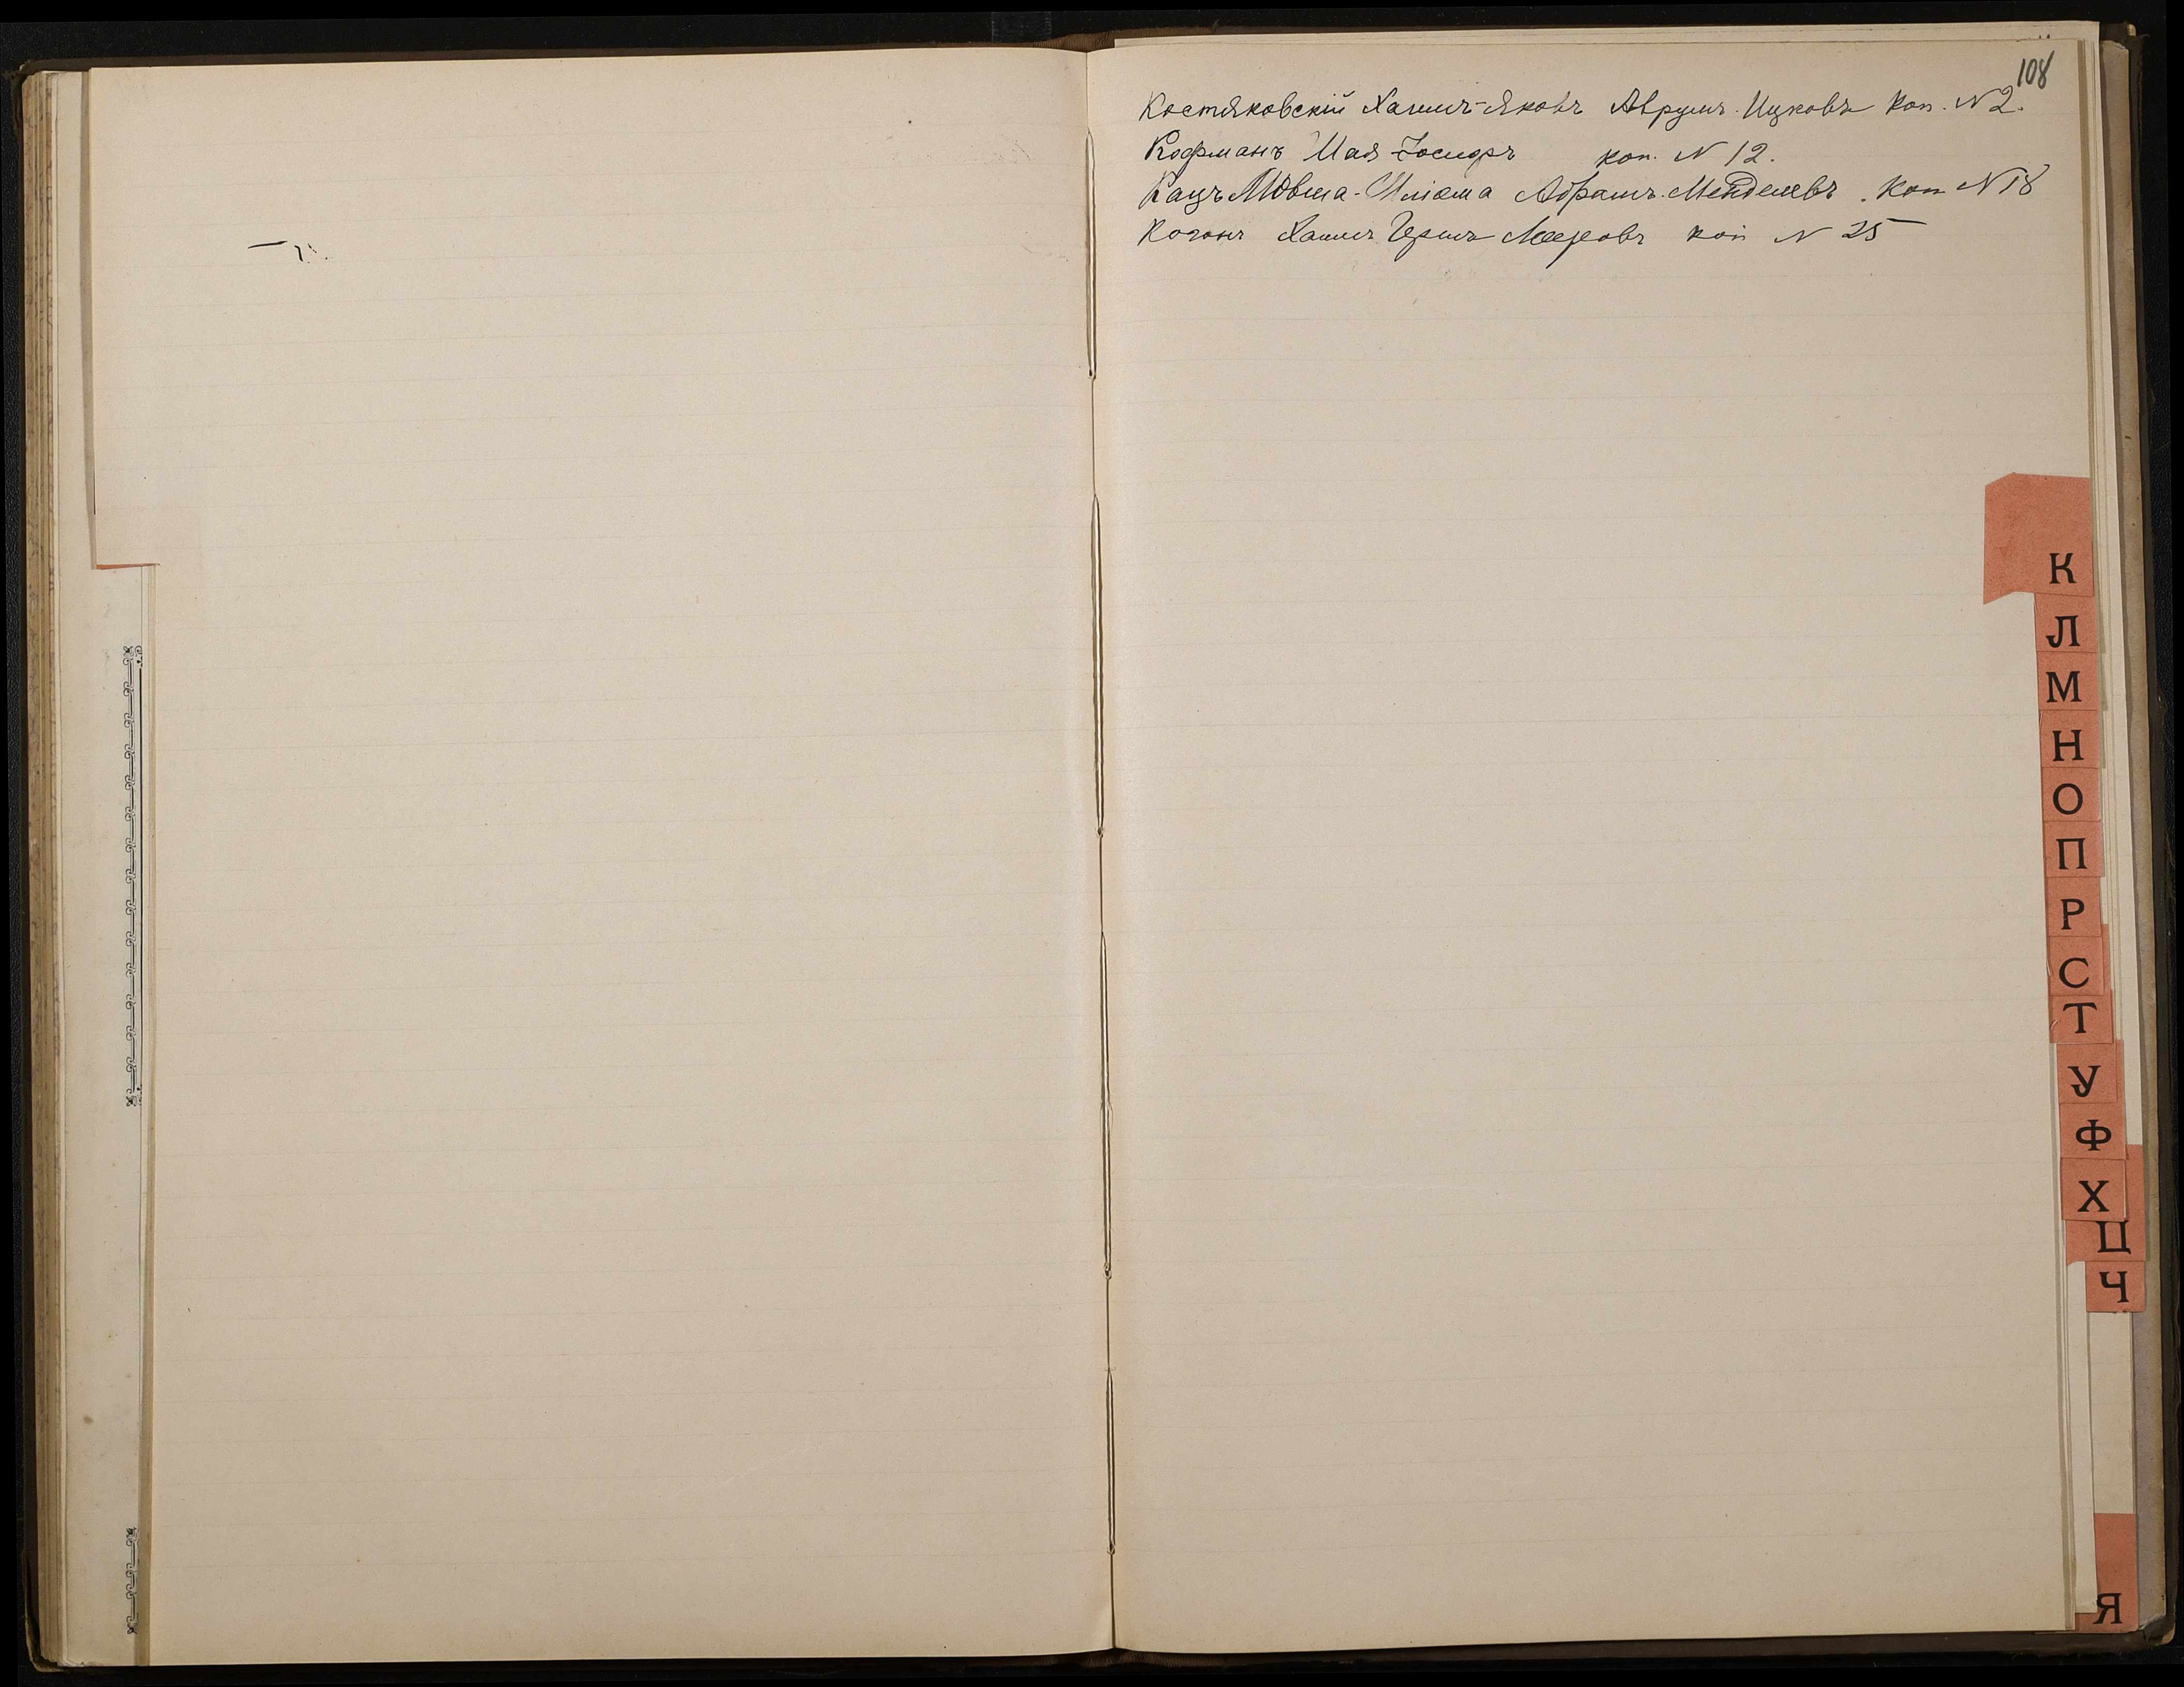 108
Костяковскій Хаимъ-Яковъ Аврумъ. Ицковъ коп. N 2.
Кофманъ Шая-Іосифъ коп. N 12.
Кацъ Мовша-Шліома Абрамъ. Менделевъ. коп N 18
Коганъ Хаимъ Гершъ Мееровъ коп N 25
К
Л
М
Н
О
П
Р
С
Т
У
Ф
Х
Ц
Ч
Я